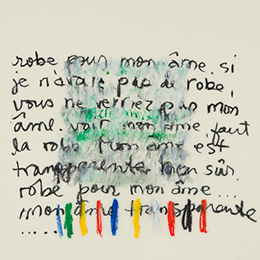 robe pour mon âme. si
je n'avais pas de robe,
vous ne verriez pas mon
âme. voir mon âme, faut
la robe. l'un âme est
transparente bien sûr.
robe pour mon âme...
mon âme transparente
.....